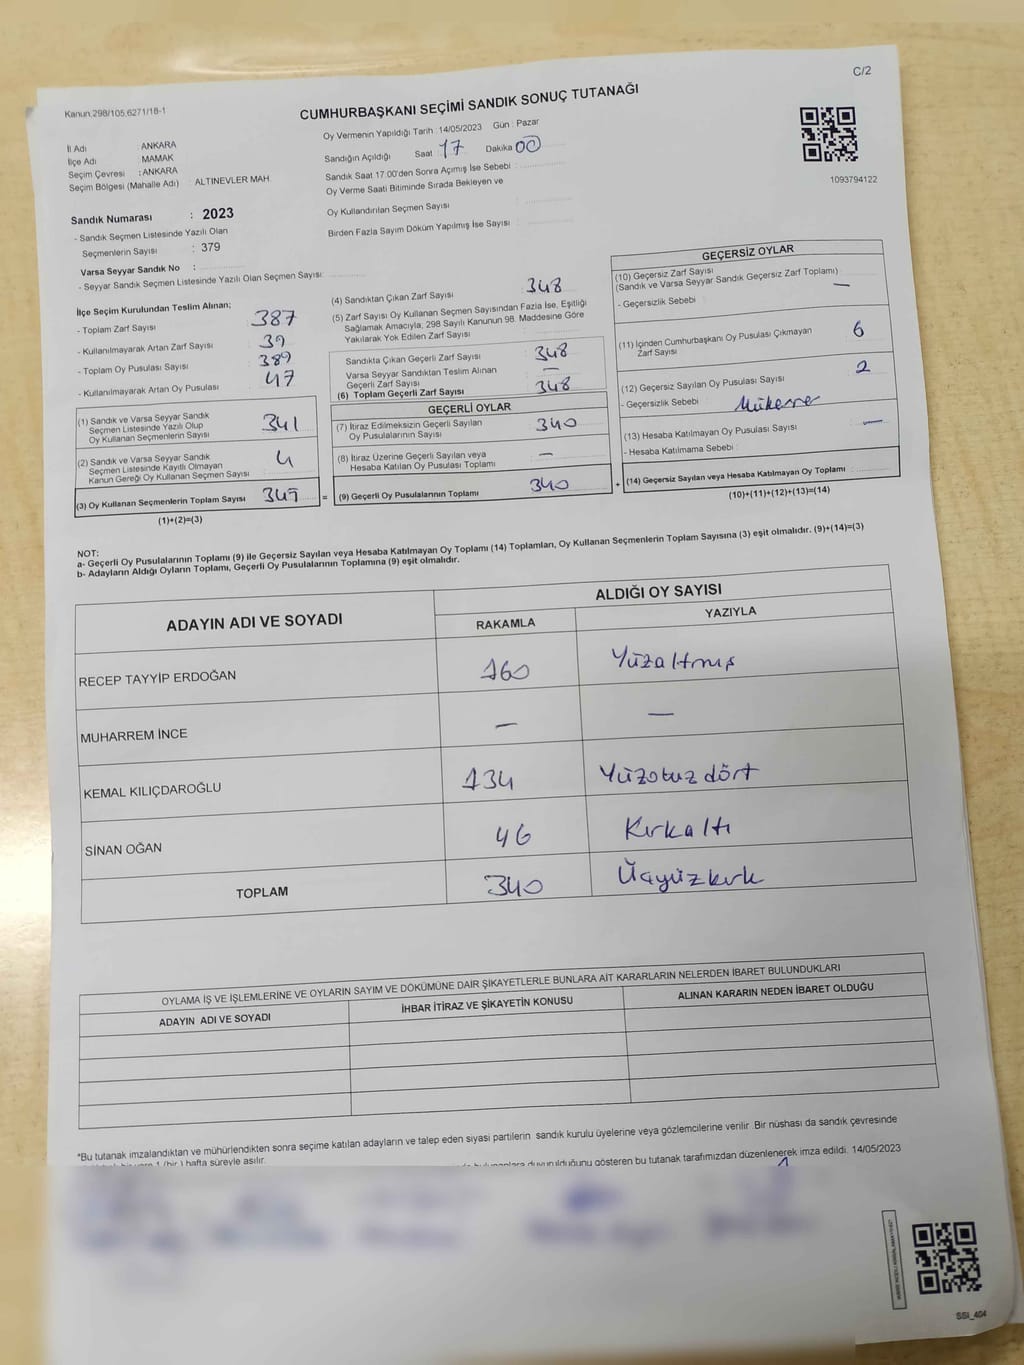 C/2
Kanun:298/105,6271/18-1
CUMHURBAŞKANI SEÇİMİ SANDIK SONUÇ TUTANAĞI
İl Adı ANKARA
İlçe Adı MAMAK
Seçim Çevresi : ANKARA
Seçim Bölgesi (Mahalle Adı) : ALTINEVLER MAH.
Sandık Numarası : 2023
- Sandık Seçmen Listesinde Yazılı Olan
Seçmenlerin Sayısı : 379
Varsa Seyyar Sandık No :
- Seyyar Sandık Seçmen Listesinde Yazılı Olan Seçmen Sayısı:
Oy Vermenin Yapıldığı Tarih : 14/05/2023 Gün : Pazar
Sandığın Açıldığı Saat 17 Dakika 00
Sandık Saat 17:00'den Sonra Açımış İse Sebebi :
Oy Verme Saati Bitiminde Sırada Bekleyen ve
Oy Kullandırılan Seçmen Sayısı :
Birden Fazla Sayım Döküm Yapılmış İse Sayısı :
1093794122
İlçe Seçim Kurulundan Teslim Alınan;
- Toplam Zarf Sayısı 387
- Kullanılmayarak Artan Zarf Sayısı 39
- Toplam Oy Pusulası Sayısı 389
- Kullanılmayarak Artan Oy Pusulası 47
(1) Sandık ve Varsa Seyyar Sandık
Seçmen Listesinde Yazılı Olup
Oy Kullanan Seçmenlerin Sayısı 341
(2) Sandık ve Varsa Seyyar Sandık
Seçmen Listesinde Kayıtlı Olmayan
Kanun Gereği Oy Kullanan Seçmen Sayısı 4
(3) Oy Kullanan Seçmenlerin Toplam Sayısı =
(1)+(2)=(3)
(4) Sandıktan Çıkan Zarf Sayısı 348
(5) Zarf Sayısı Oy Kullanan Seçmen Sayısından Fazla İse, Eşitliği
Sağlamak Amacıyla, 298 Sayılı Kanunun 98. Maddesine Göre
Yakılarak Yok Edilen Zarf Sayısı
Sandıkta Çıkan Geçerli Zarf Sayısı 348
Varsa Seyyar Sandıktan Teslim Alınan
Geçerli Zarf Sayısı —
(6) Toplam Geçerli Zarf Sayısı 348
GEÇERLİ OYLAR
(7) İtiraz Edilmeksizin Geçerli Sayılan
Oy Pusulalarının Sayısı 340
(8) İtiraz Üzerine Geçerli Sayılan veya
Hesaba Katılan Oy Pusulası Toplamı —
(9) Geçerli Oy Pusulalarının Toplamı 340 +
GEÇERSİZ OYLAR
(10) Geçersiz Zarf Sayısı
(Sandık ve Varsa Seyyar Sandık Geçersiz Zarf Toplamı) —
- Geçersizlik Sebebi :
(11) İçinden Cumhurbaşkanı Oy Pusulası Çıkmayan
Zarf Sayısı 6
(12) Geçersiz Sayılan Oy Pusulası Sayısı 2
- Geçersizlik Sebebi : Mükerrer
(13) Hesaba Katılmayan Oy Pusulası Sayısı —
- Hesaba Katılmama Sebebi :
(14) Geçersiz Sayılan veya Hesaba Katılmayan Oy Toplamı :
(10)+(11)+(12)+(13)=(14)
NOT:
a- Geçerli Oy Pusulalarının Toplamı (9) ile Geçersiz Sayılan veya Hesaba Katılmayan Oy Toplamı (14) Toplamları, Oy Kullanan Seçmenlerin Toplam Sayısına (3) eşit olmalıdır. (9)+(14)=(3)
b- Adayların Aldığı Oyların Toplamı, Geçerli Oy Pusulalarının Toplamına (9) eşit olmalıdır.
ADAYIN ADI VE SOYADI ALDIĞI OY SAYISI
RAKAMLA YAZIYLA
RECEP TAYYİP ERDOĞAN 160 Yüzaltmış
MUHARREM İNCE — —
KEMAL KILIÇDAROĞLU 134 Yüzotuz dört
SİNAN OĞAN 46 Kırkaltı
TOPLAM 340 Üçyüzkırk
OYLAMA İŞ VE İŞLEMLERİNE VE OYLARIN SAYIM VE DÖKÜMÜNE DAİR ŞİKAYETLERLE BUNLARA AİT KARARLARIN NELERDEN İBARET BULUNDUKLARI
ADAYIN ADI VE SOYADI İHBAR İTİRAZ VE ŞİKAYETİN KONUSU ALINAN KARARIN NEDEN İBARET OLDUĞU
*Bu tutanak imzalandıktan ve mühürlendikten sonra seçime katılan adayların ve talep eden siyasi partilerin sandık kurulu üyelerine veya gözlemcilerine verilir. Bir nüshası da sandık çevresinde
hafta süreyle asılır.
duyurulduğunu gösteren bu tutanak tarafımızdan düzenlenerek imza edildi. 14/05/2023
SSI_404